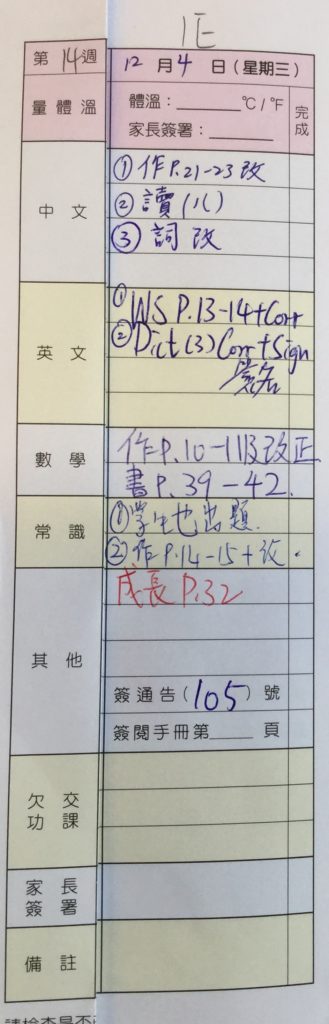 1E
第 14 週 12 月 4 日（星期三）
量體溫 體溫：______°C / °F 完成
家長簽署：______
中文 ① 作 P.21-23 改
② 讀 (八)
③ 詞 改
英文 ① WS P.13-14+Corr
② Dict (3) Corr + Sign
簽名
數學 作P.10-11B改正
書P.39-42.
常識 ① 學生也出題.
② 作P.14-15+改.
其他 成長 P.32
簽通告 (105) 號
簽閱手冊第____頁
欠交功課
家長簽署
備註